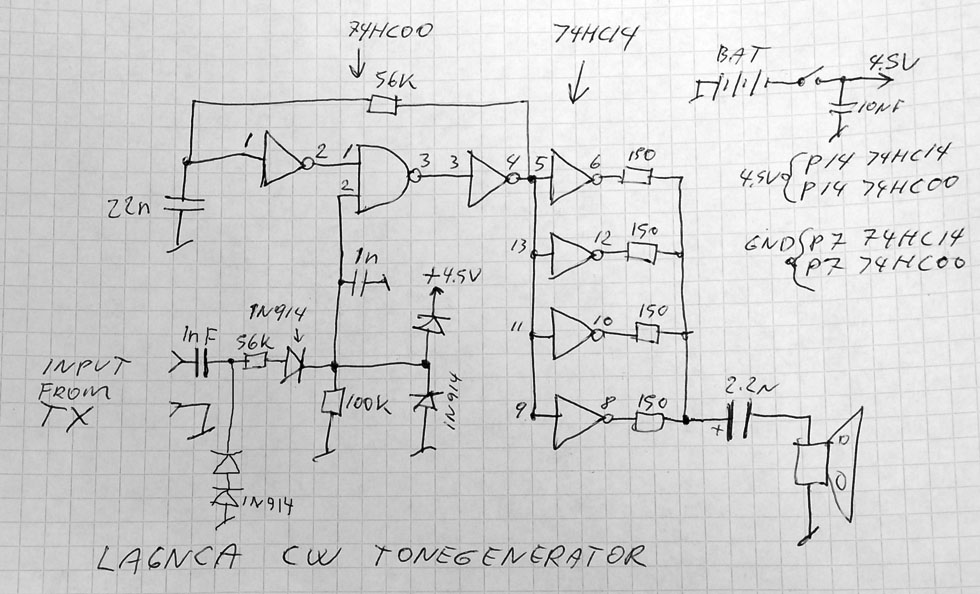 74HC00
74HC14
BAT
4.5V
56K
10NF
1
2
1
3
3
4
5
6
150
2
22n
4.5V { P14 74HC14
P14 74HC00
13
12
150
GND { P7 74HC14
P7 74HC00
1n
+4.5V
1N914
11
10
150
1nF
56K
INPUT
FROM
TX
100K
1N914
9
8
150
2.2N
+
8
Ω
1N914
LA6NCA CW TONEGENERATOR